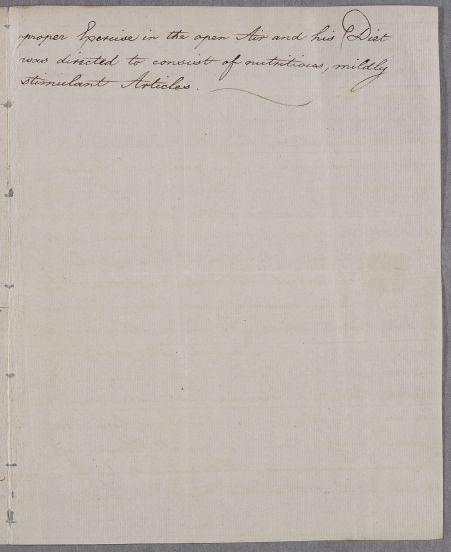 proper Exercise in the open Air and his Diet
was directed to consist of nutritious, mildly
stimulant Articles.